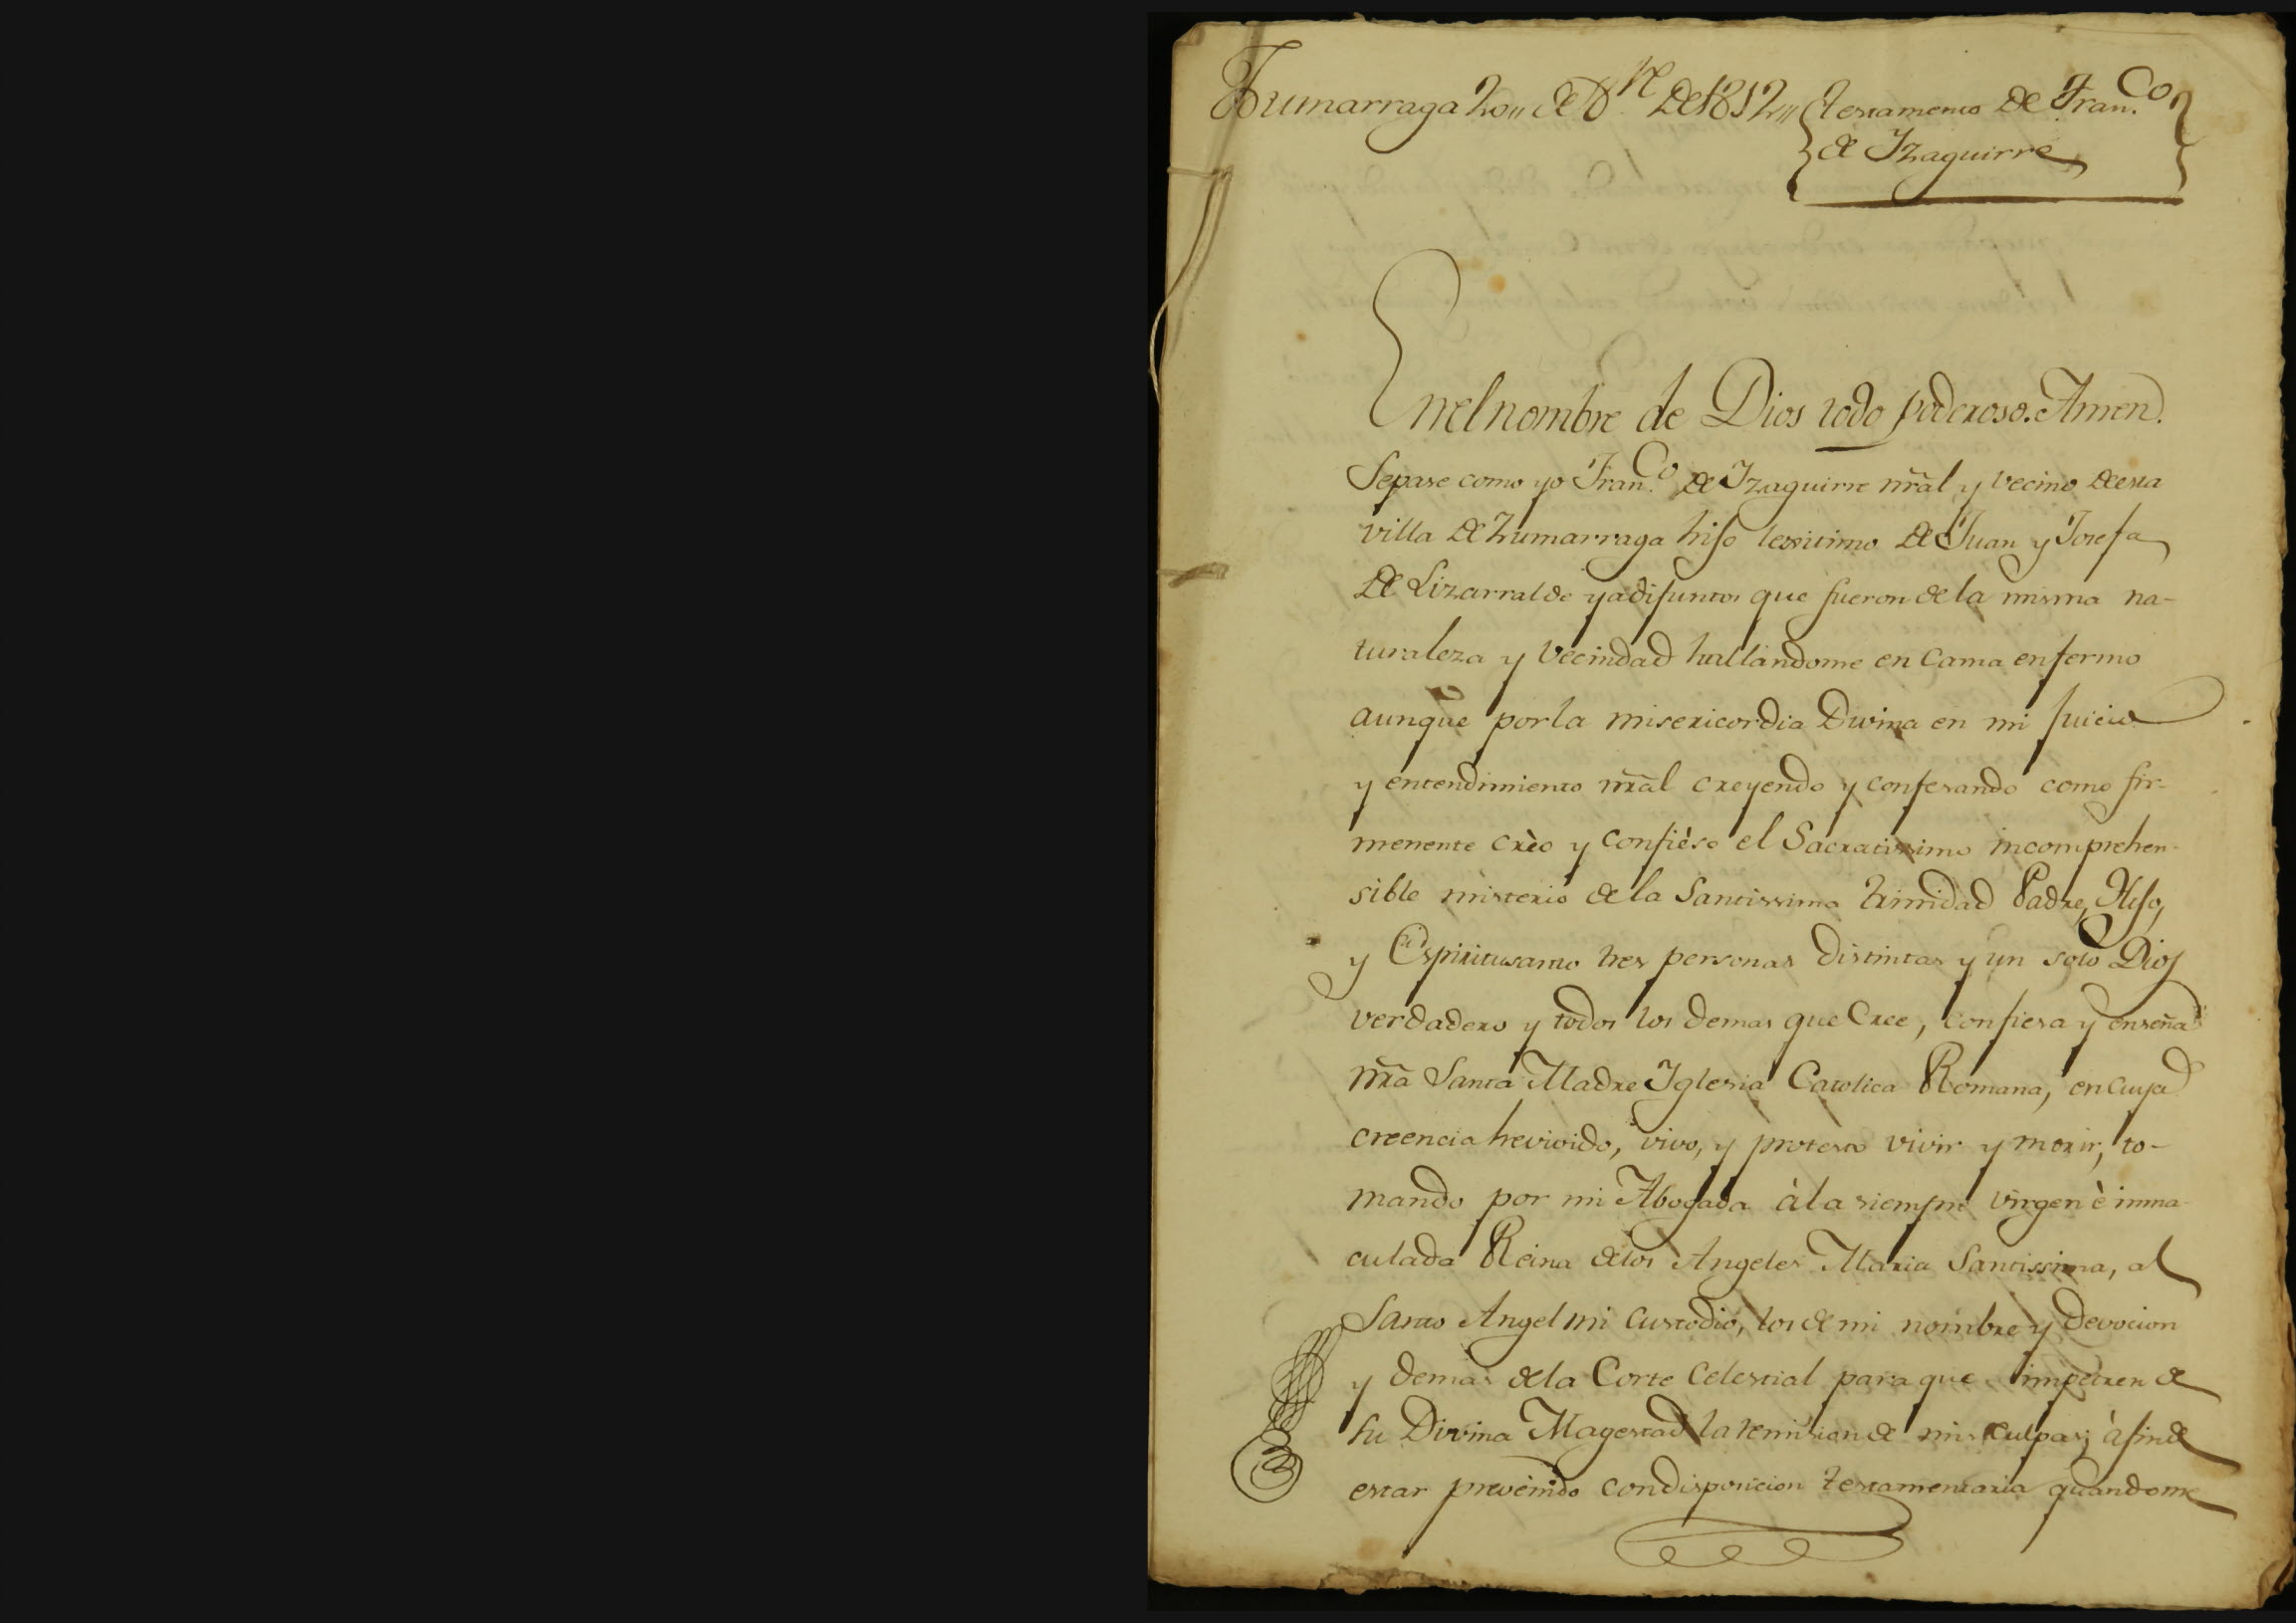 Zumarraga 20,, de Dre. de 1812,, Testamento de Franco.
de Yzaguirre
En el nombre de Dios todo poderoso. Amen.
Sepase como yo Franco. de Yzaguirre nrãl y vecino de esta
villa de Zumarraga hijo lexitimo de Juan y Josefa
de Lizarralde ya difuntos que fueron de la misma na-
turaleza y vecindad hallandome en cama enfermo
aunque por la misericordia Divina en mi juicio
y entendimiento nrãl creyendo y confesando como fir-
memente crèo y confièso el Sacratissimo incomprehen-
sible misterio de la Santissima Trinidad Padre, Hijo,
y Espiritusanto tres personas distintas y un solo Dios
verdadero y todos los demas que Cree, confiesa y enseña
nrã Santa Madre Iglesia Catolica Romana, en cuya
creencia he vivido, vivo, y protesto vivir y morir, to-
mando por mi Abogada à la siempre virgen è inma-
culada Reina de los Angeles Maria Santissima, al
Santo Angel mi custodio, los de mi nombre y devocion
y demas de la Corte Celestial para que impetren de
su Divina Magestad la remision de mis culpas; à fin de
estar prevenido con disposicion testamentaria quando me